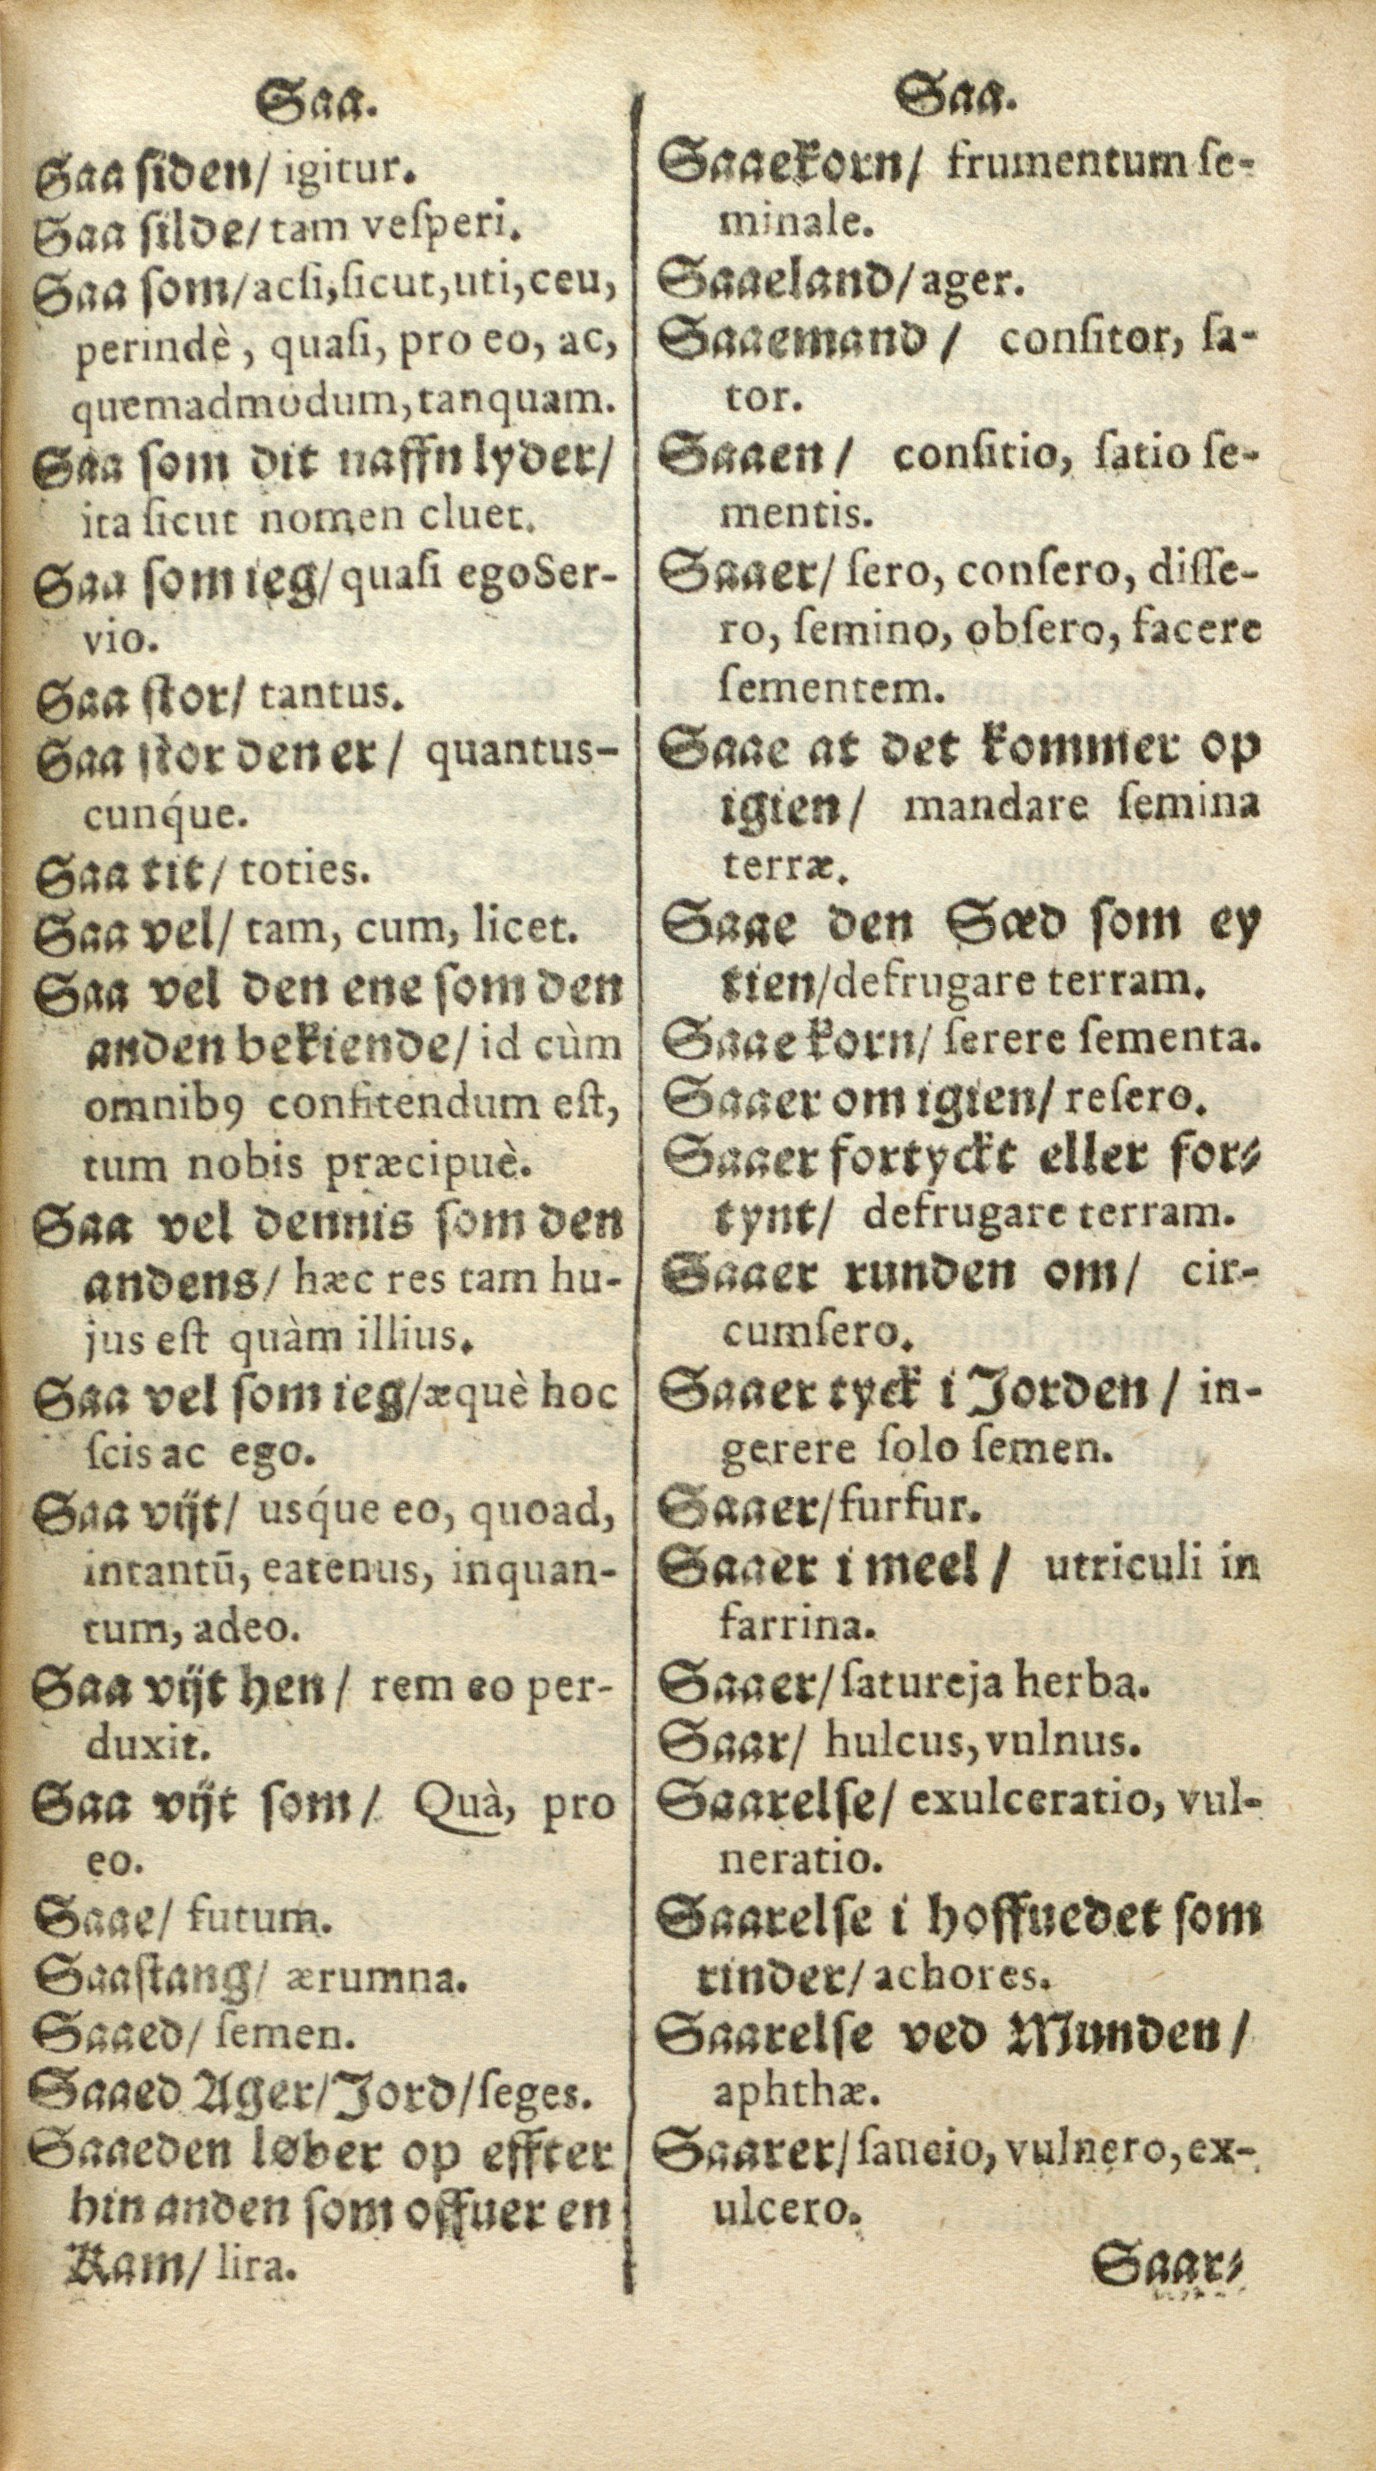 Saa.
Saa siden/ igitur.
Saa silde/ tam veſperi.
Saa som/ acſi, ſicut, uti, ceu,
perindè, quaſi, pro eo, ac,
quemadmodum, tanquam.
Saa som dit naffn lyder/
ita ſicut nomen cluet.
Saa som ieg/ quaſi ego Ser-
vio.
Saa stor/ tantus.
Saa stor den er/ quantus-
cunq́ue.
Saa tit/ toties.
Saa vel/ tam, cum, licet.
Saa vel den ene som den
anden bekiende/ id cùm
omnibꝯ confitendum eſt,
tum nobis præcipuè.
Saa vel dennis som den
andens/ hæc res tam hu-
jus eſt quàm illius.
Saa vel som ieg/ æquè hoc
ſcis ac ego.
Saa vijt/ usq́ue eo, quoad,
intantū, eatenus, inquan-
tum, adeo.
Saa vijt hen/ rem eo per-
duxit.
Saa vijt som/ Quà, pro
eo.
Saae/ futum.
Saastang/ ærumna.
Saaed/ ſemen.
Saaed Ager/ Jord/ ſeges.
Saaeden løber op effter
hin anden som offuer en
Kam/ lira.
Saa.
Saaekorn/ frumentum ſe-
minale.
Saaeland/ ager.
Saaemand/ conſitor, ſa-
tor.
Saaen/ conſitio, ſatio ſe-
mentis.
Saaer/ ſero, conſero, diſſe-
ro, ſemino, obſero, facere
ſementem.
Saae at det kommer op
igien/ mandare ſemina
terræ.
Saae den Sæd som ey
tien/ defrugare terram.
Saae korn/ ſerere ſementa.
Saaer om igien/ reſero.
Saaer fortyckt eller for⸗
tynt/ defrugare terram.
Saaer runden om/ cir-
cumſero.
Saaer tyck i Jorden/ in-
gerere ſolo ſemen.
Saaer/ furfur.
Saaer i meel/ utriculi in
farrina.
Saaer/ ſatureja herba.
Saar/ hulcus, vulnus.
Saarelse/ exulceratio, vul-
neratio.
Saarelse i hoffuedet som
rinder/ achores.
Saarelse ved Munden/
aphthæ.
Saarer/ ſaucio, vulnero, ex-
ulcero.
Saar⸗